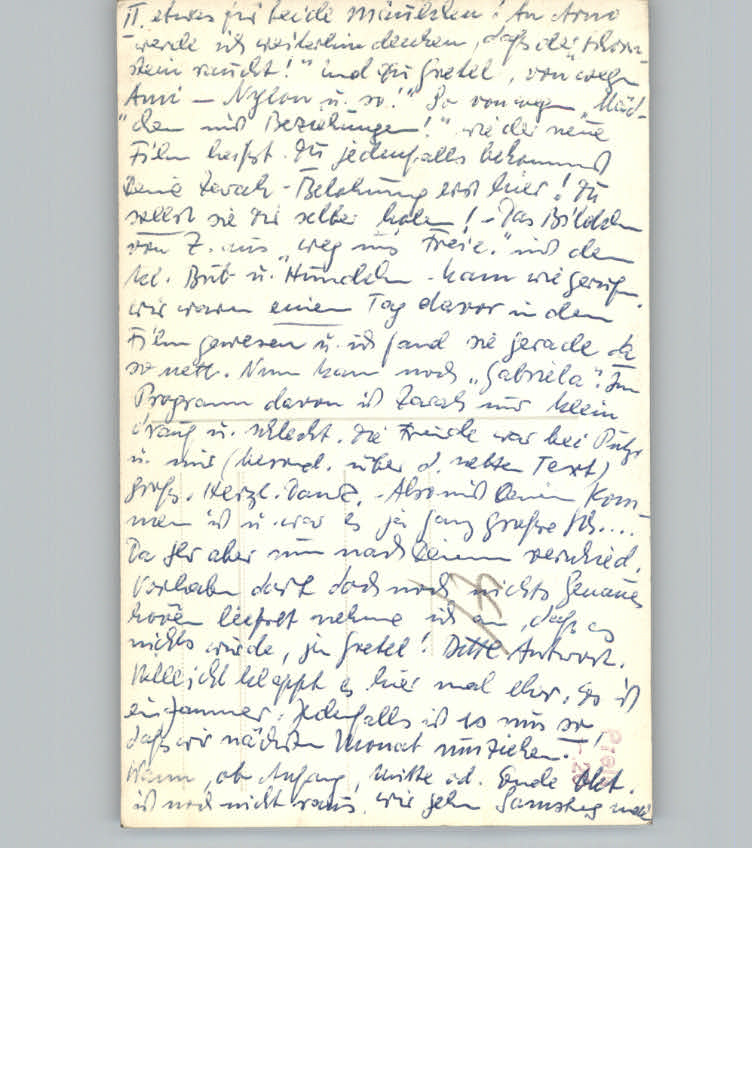 II. etwas für beide Mäulchen! An Arno
werde ich weiterhin denken, „daß der Schorn-
stein raucht!“ und zu Gretel, „von wegen
Ami – Nylon u. so!“ So von wegen „Mäd-
„chen mit Beziehungen!“ wie der neue
Film heißt. Du jedenfalls bekommst
Deine Zarah-Belohnung erst hier! Du
sollst sie Dir selber holen! – Das Bildchen
von Z. aus „Weg ins Freie.“ mit dem
kl. Bub u. Hündchen kam wie gerufen.
Wir waren einen Tag davor in dem
Film gewesen u. ich fand sie gerade da
so nett. Nun kam noch „Gabriela“. Im
Programm davon ist Zarah nur klein
drauf u. schlecht. Die Freude war bei
u. mir (bezügl. über d. netten Text)
groß. Herzl. Dank. – Also mit Deinem Kom-
men ist u. war es ja ganz große
Da Ihr aber nun nach Deinem verschied.
Vorhaben dort doch noch nichts Genaues
hören ließet nehme ich an, daß es
nichts würde, ja Gretel! Bitte Antwort.
Vielleicht klappt es hier mal eher. Es ist
ein Jammer. Jedenfalls ist es nun so,
daß wir nächsten Monat umziehen.
Wann, ob Anfang, Mitte od. Ende Okt.
ist noch nicht raus. Wir gehn Samstag